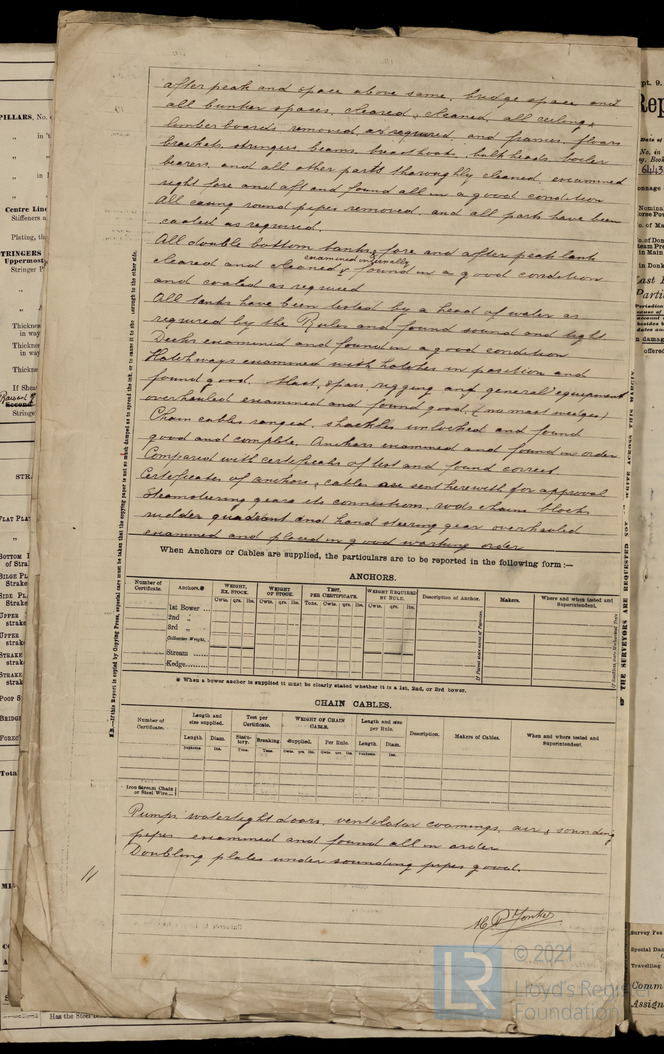 after peak and space above same, bridge space and
all bunker spaces, cleared & cleaned, all ceiling &
limber boards removed as required, and frames, floors
brackets, stringers, beams, breasthooks, bulkheads, boiler
bearers, and all other parts thoroughly cleaned, examined
right fore and aft and found all in a good condition
All casing round pipes removed, and all parts have been
coated as required.
All double bottom tanks, fore and after peak tank
cleared and cleaned examined internally & found in a good condition
and coated as required
All tanks have been tested by a head of water as
required by the Rules and found sound and tight.
Decks examined and found in a good condition
Hatchways examined with hatches in position and
found good. Mast, spars, rigging and general equipment
overhauled examined and found good, (no mast wedges)
Chain cables ranged, shackles unlocked and found
good and complete. Anchors examined and found in order
Compared with certificate of test and found correct
Certificates of anchors & cables are sent herewith for approval
Steamsteering gear & its connections, rods chains blocks
rudder quadrant and hand steering gear overhauled
examined and placed in good working order
When Anchors or Cables are supplied, the particulars are to be reported in the following form :—
ANCHORS.
Number of Certificate. Anchors.* WEIGHT, EX. STOCK. WEIGHT OF STOCK. TEST, PER CERTIFICATE. WEIGHT REQUIRED BY RULE. Description of Anchor. Makers. Where and when tested and Superintendent.
Cwts. qrs. lbs. Cwts. qrs. lbs. Tons. Cwts. qrs. lbs. Cwts. qrs. lbs.
1st Bower ...
2nd „
3rd „
Collective Weight.
Stream ......
Kedge.......
* When a bower anchor is supplied it must be clearly stated whether it is a 1st, 2nd, or 3rd bower.
CHAIN CABLES.
Number of Certificate. Length and size supplied. Test per Certificate. WEIGHT OF CHAIN CABLE. Length and size per Rule. Description. Makers of Cables. When and where tested and Superintendent.
Length. Diam. Statutory. Breaking. Supplied. Per Rule. Length. Diam.
Iron Stream Chain or Steel Wire...
Pumps watertight doors, ventilator coamings, air & sounding
pipes examined and found all in order
Doubling plates under sounding pipes good.
11
© 2021
Lloyd's Register
Foundation
LR
PILLARS, No.
Centre Line
Stiffeners
Plating, th
STRINGERS
Uppermost
Stringer P
Thickness
in way
Thickness
in way
Thickness
If Shea
Raised Q
Second
Stringe
STR
FLAT PLA
BOTTOM
of Stra
BILGE PL
Strake
SIDE PL
UPPER
strake
UPPER
Strake
STRAKE
STRAKE
POOP S
BRIDGE
FOREC
Total
Has the Steel
pt. 9.
Rep
643
Survey Fee
Special Dam
Travelling
Comm
Assign